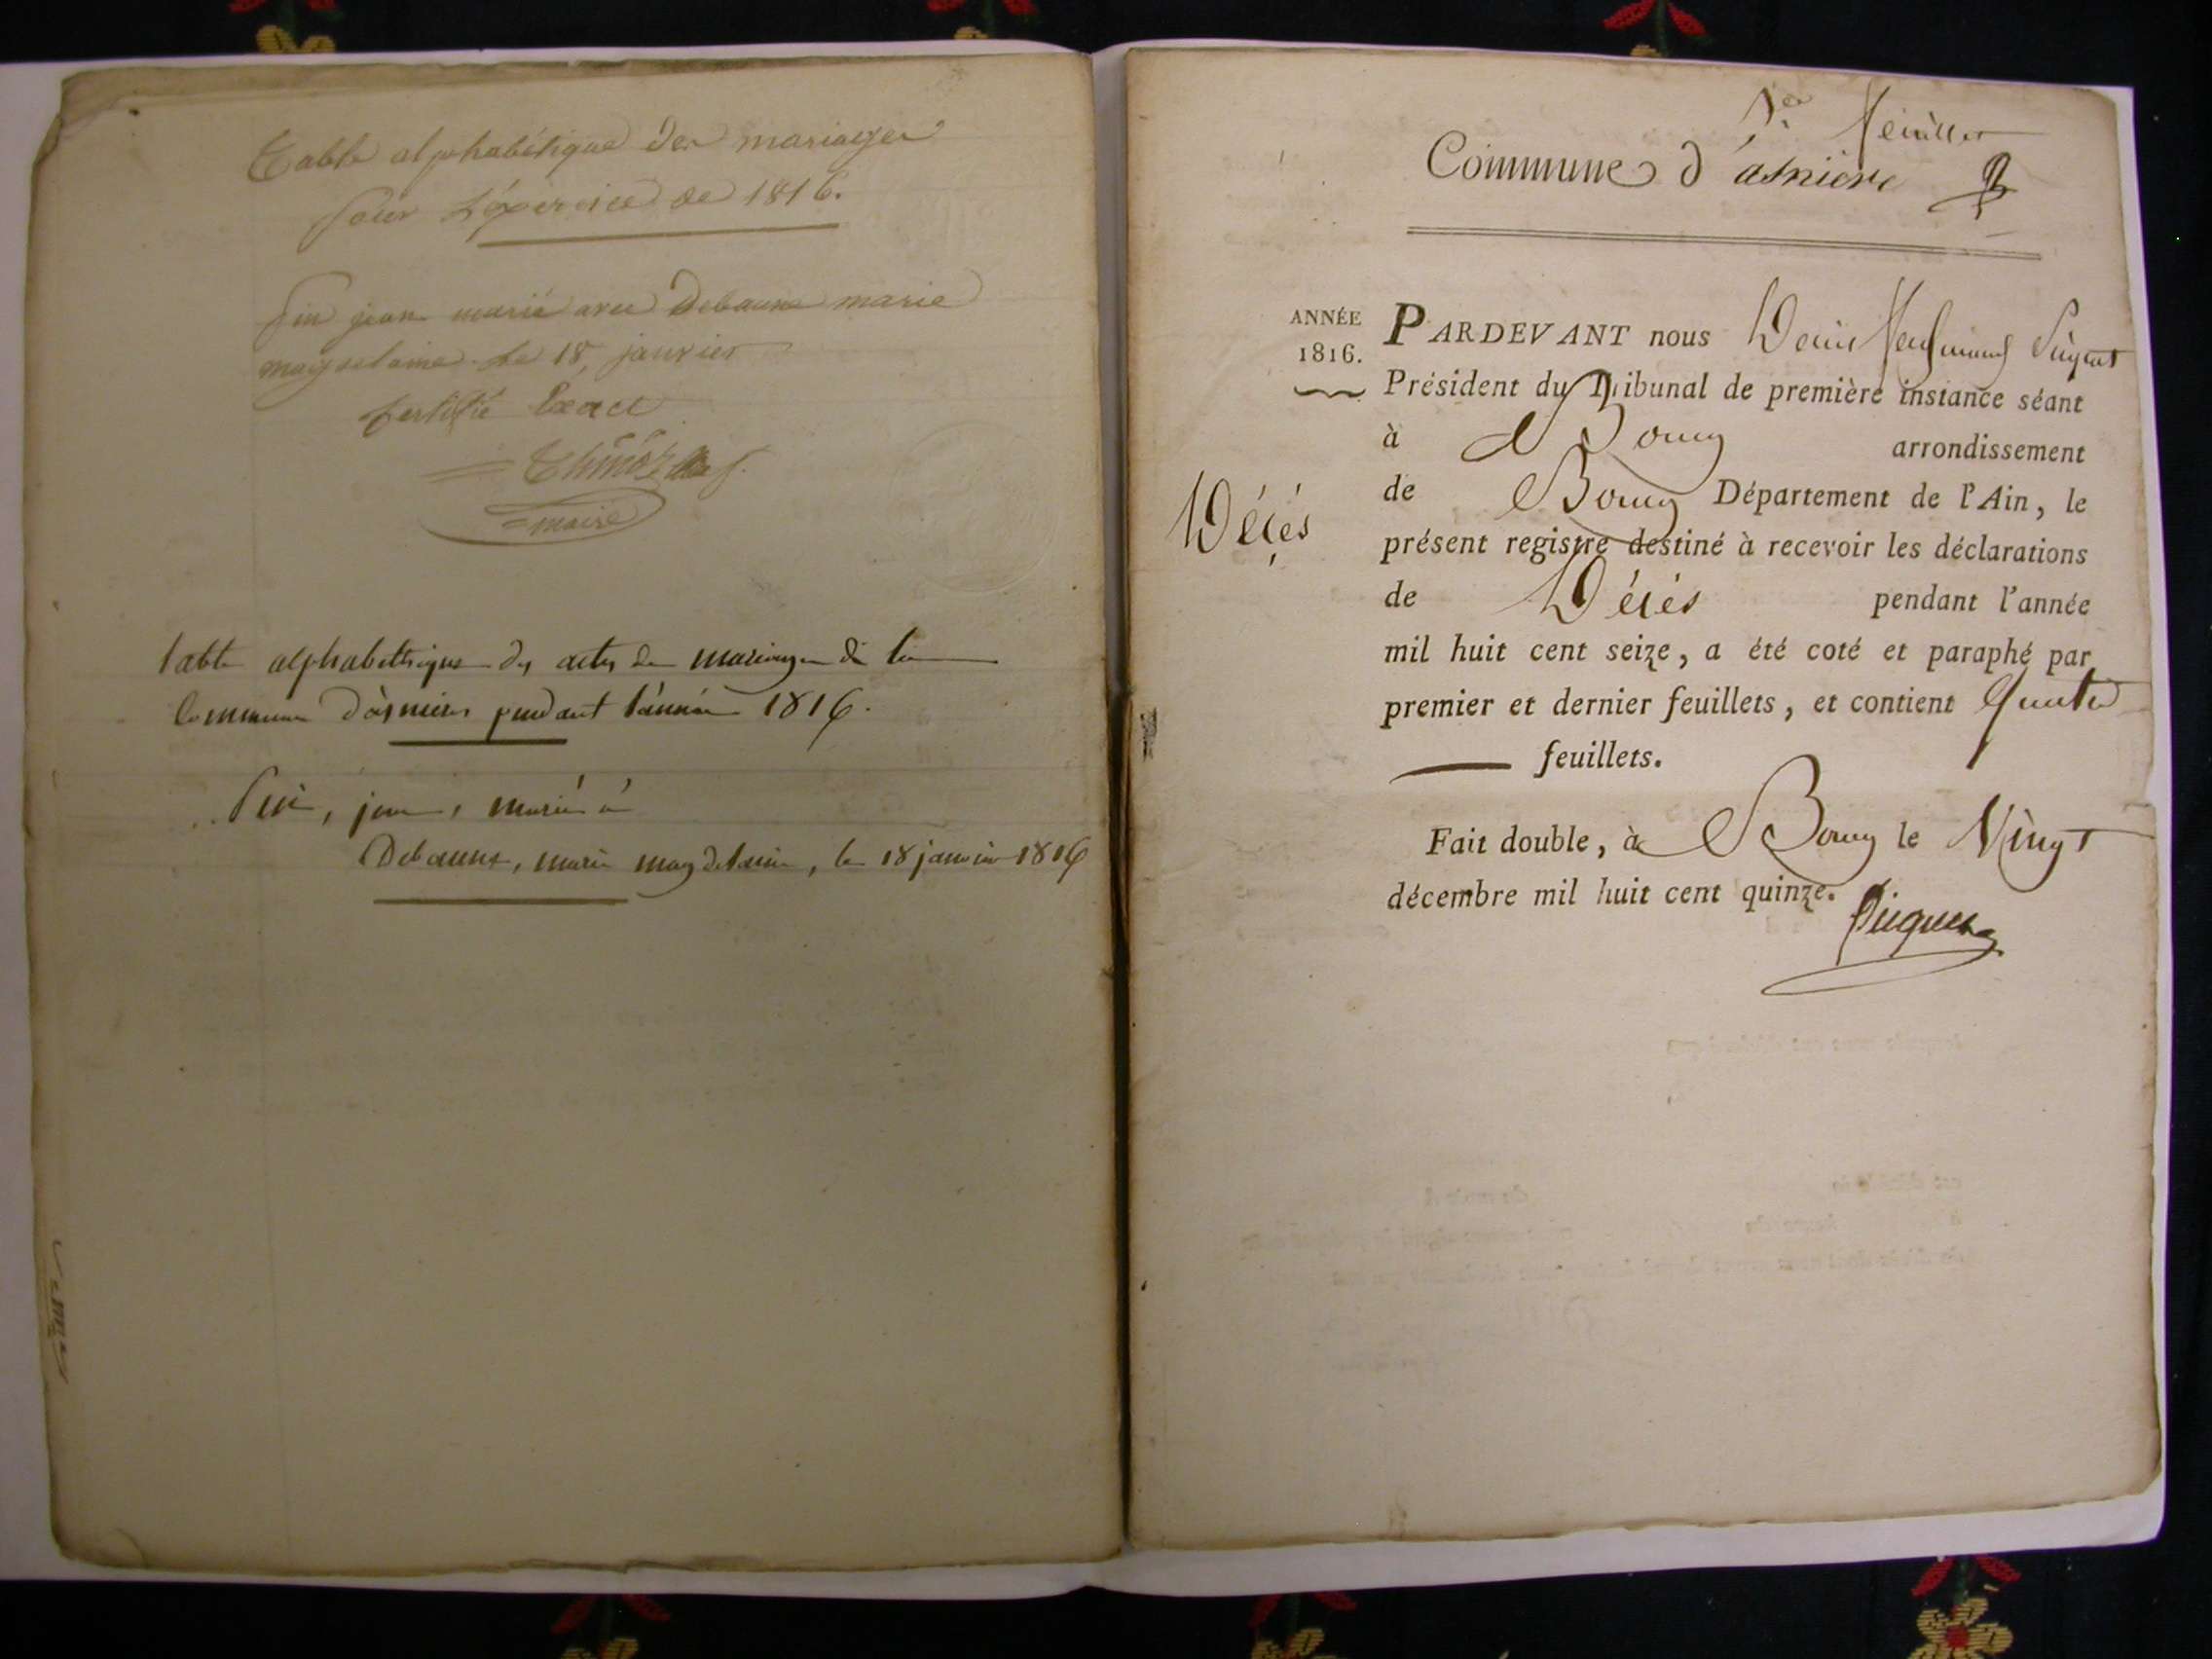 Table alphabétique des mariages
pour l'éxercice de 1816.
jean marié avec Debaune marie
magdelaine le 18, janvier
Certifié Exact
maire
table alphabethique des actes de mariages de la
Commune d'asnieres pendant l'année 1816.
jean, marié à
Debaune, marie magdelaine, le 18 janvier 1816
1er feuillet
Commune d'asniere
ANNÉE
1816.
PARDEVANT nous Denis Ferdinand Piquet
Président du Tribunal de première instance séant
à Bourg arrondissement
de Bourg Département de l'Ain, le
Décés
présent registre destiné à recevoir les déclarations
de Décés pendant l'année
mil huit cent seize, a été coté et paraphé par
premier et dernier feuillets, et contient quatre
feuillets.
Fait double, à Bourg le Vingt
décembre mil huit cent quinze.
Piquet